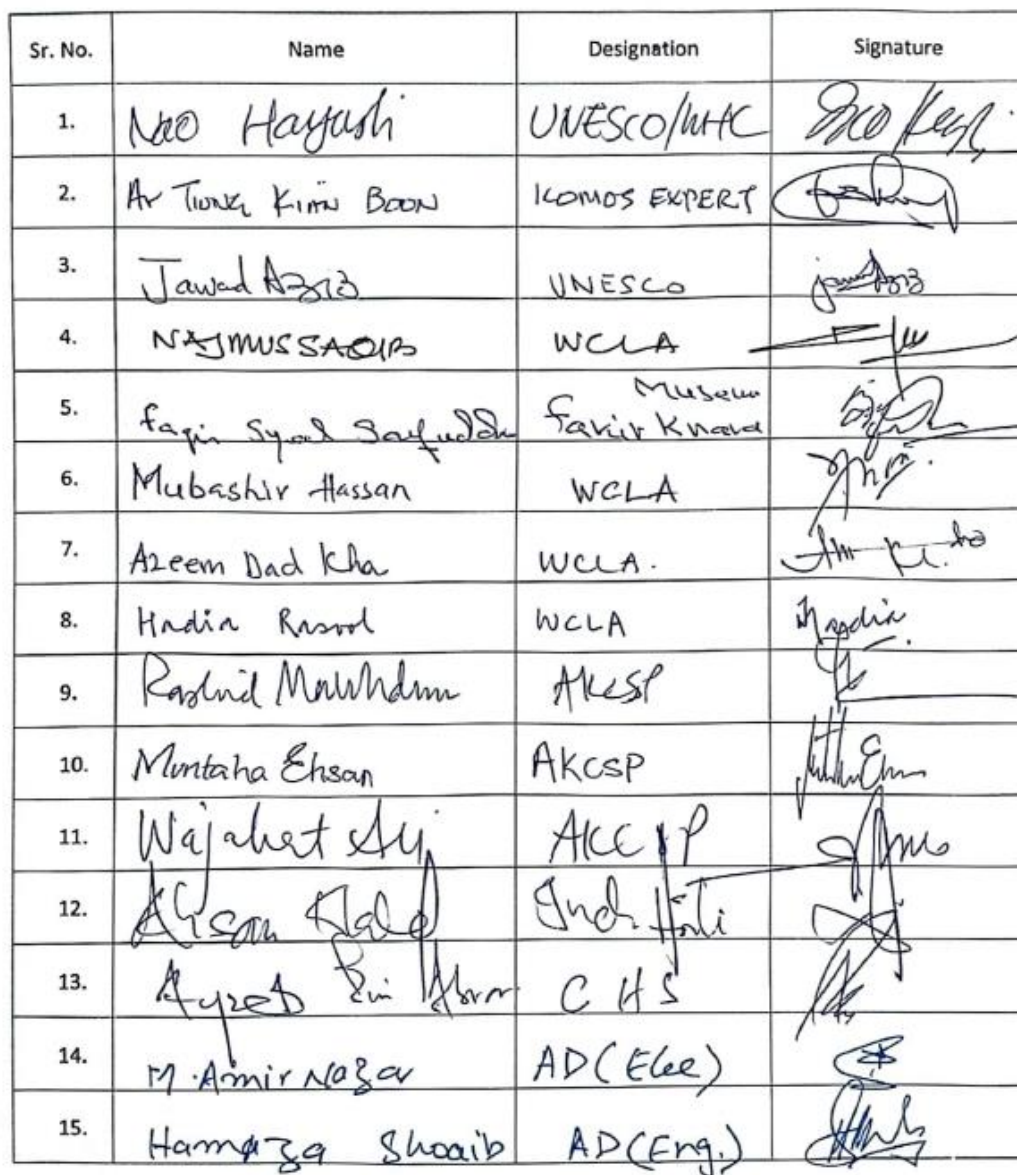 Sr. No. Name Designation Signature
1. Nao Hayashi UNESCO/WHC
2. Ar Tiong Kian Boon ICOMOS EXPERT
3. Jawad Aziz UNESCO jawad Aziz
4. NAJMUSSAQIB WCLA
Museum
5. faqir Syed Saifuddin fakir Khana
6. Mubashir Hassan WCLA
7. Azeem Dad Kha WCLA.
8. Hadia Rasool WCLA Hadia
9. Rashid Makhdum AKCSP
10. Muntaha Ehsan AKCSP
11. Wajahat Ali AKCSP
12. Ahsan
13. Bin C H S
14. M. Amir Nazar AD (Elec)
15. Hamaza Shoaib AD (Eng.)